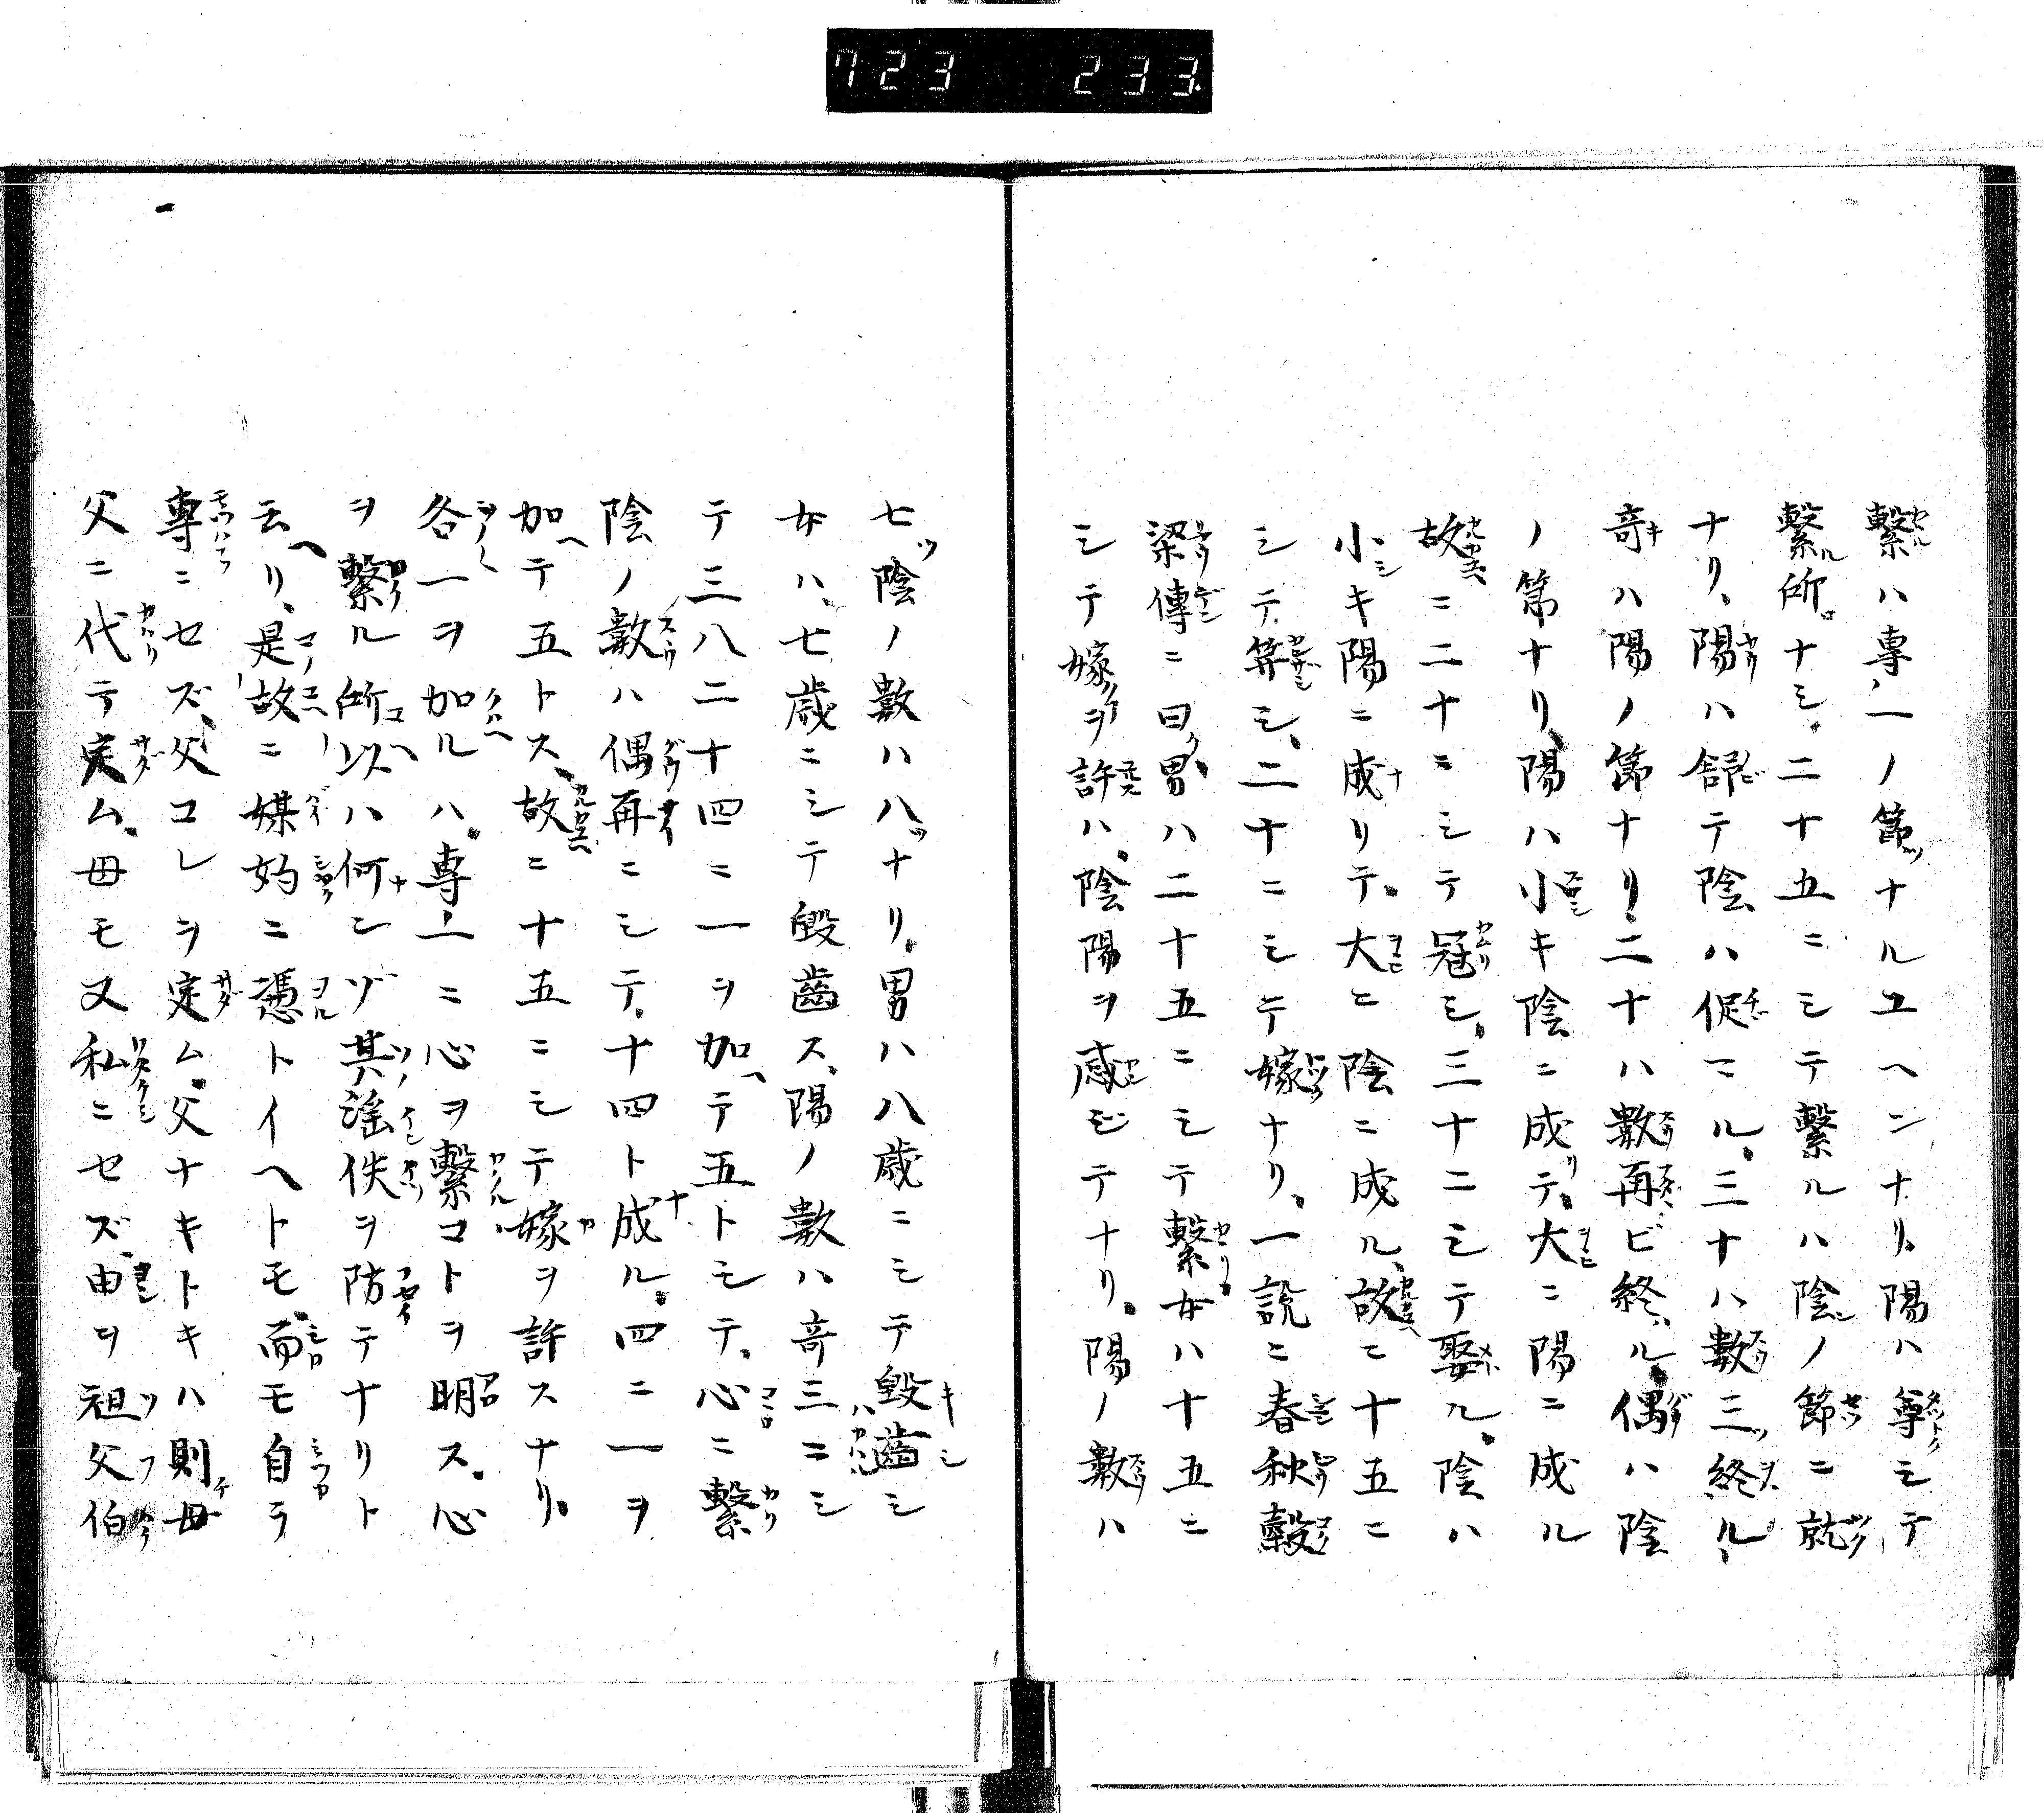 723 233
繫ハ專一ノ節ナルユヘンナリ、陽ハ尊シテ
繫ル所ナシ、二十五ニシテ繫ルハ陰ノ節ニ就
ナリ、陽ハ舒テ陰ハ促マル、三十ハ數三終ル、
奇ハ陽ノ節ナリ、二十ハ數再ビ終ル、偶ハ陰
ノ節ナリ、陽ハ小キ陰ニ成テ、大ニ陽ニ成ル
故ニ二十ニシテ冠シ、三十ニシテ娶ル、陰ハ
小キ陽ニ成リテ、大ニ陰ニ成ル、故ニ十五ニ
シテ筓シ、二十ニシテ嫁ナリ、一說ニ春秋穀
梁傳ニ曰、男ハ二十五ニシテ繫、女ハ十五ニ
シテ嫁ヲ許ハ、陰陽ヲ感ジテナリ、陽ノ數ハ
七陰ノ數ハ八ナリ、男ハ八歳ニシテ毀齒シ
女ハ、七歳ニシテ毀齒ス、陽ノ數ハ奇三ニシ
テ三八二十四ニ一ヲ加テ五トシテ、心ニ繫
陰ノ數ハ偶再ニシテ、十四ト成ル、四ニ一ヲ
加テ五トス、故ニ十五ニシテ嫁ヲ許スナリ、
各一ヲ加ルハ、專一ニ心ヲ繫コトヲ明ス、心
ヲ繫ル所以ハ何ンゾ其淫佚ヲ防テナリト
云リ、是故ニ媒妁ニ憑トイヘトモ、而モ自ラ
專ニセズ、父コレヲ定ム、父ナキトキハ則母
父ニ代テ定ム、母モ又私ニセズ、由ヲ祖父伯